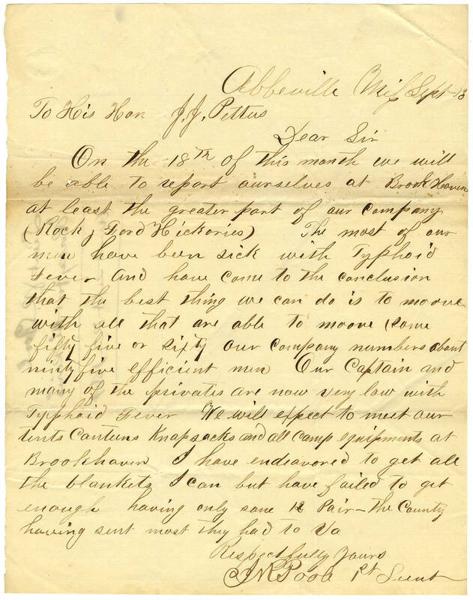 Abbeville Miss Sept 13
To His Hon J. J. Pettus
Dear Sir
On the 18th of this month we will
be able to report ourselves at Brook Haven
at least the greater part of our company
(Rocky Ford Hickories) The most of our
men have been sick with Typhoid
Fever and have come to the conclusion
that the best thing we can do is to moove
with all that are able to moove some
fifty five or sixty our company numbers about
ninty five efficient men Our Captain and
many of the privates are now very low with
Typhoid Fever We will expect to meet our
tents Canteens Knapsacks and all camp equipments at
Brookhaven I have endeavored to get all
the blankets I can but have failed to get
enough having only some 12 Pair - the County
having sent most they had to Va
Respectfully Yours
Poole 1st Lieut